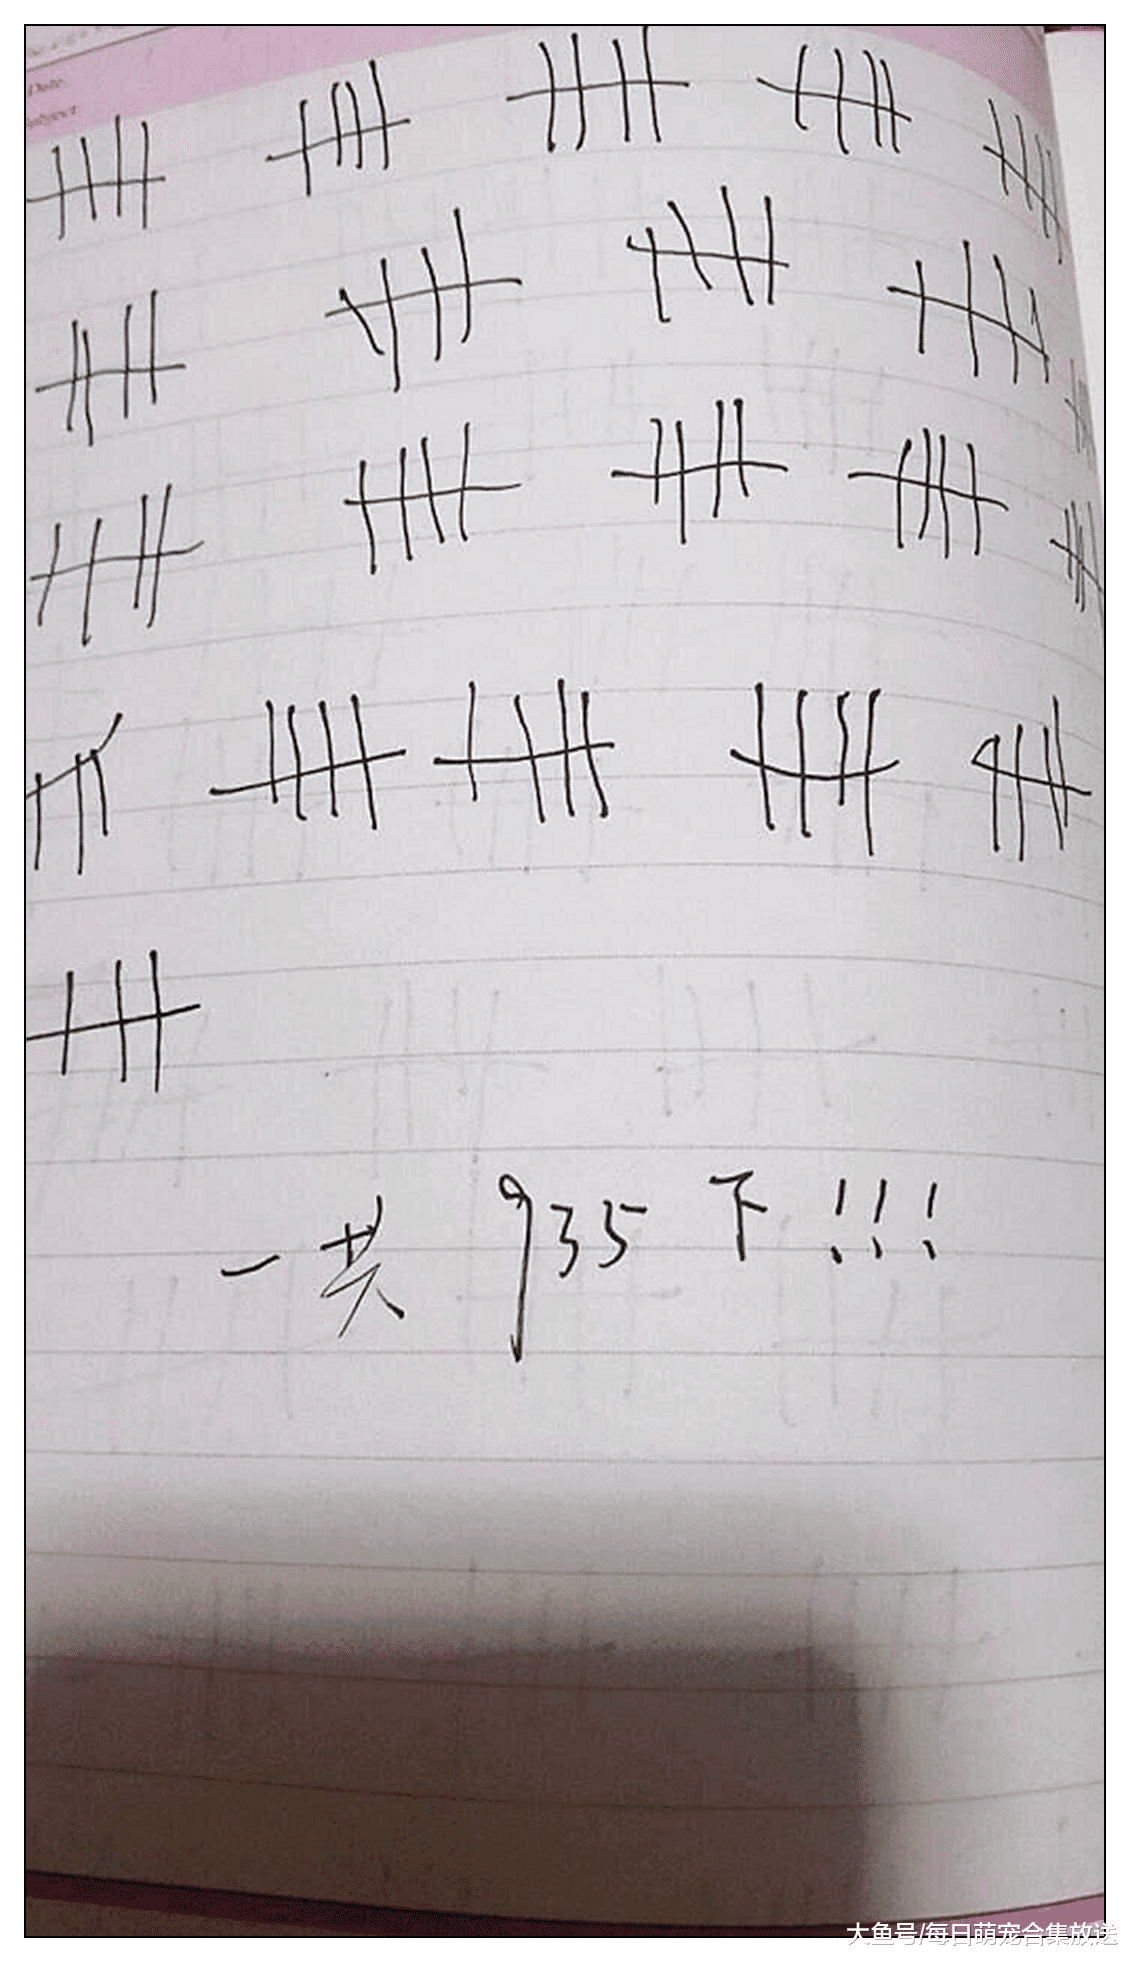 Date
Subject
一共 935 下!!!
大鱼号/每日萌宠合集放送